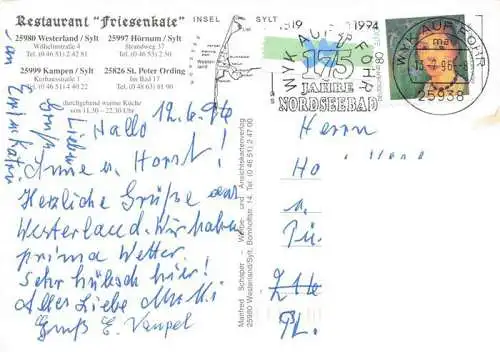 Restaurant "Friesenkate"
INSEL SYLT
25980 Westerland / Sylt
Wilhelmstraße 4
Tel. (0 46 51) 2 42 81
25997 Hörnum / Sylt
Strandweg 37
Tel. (0 46 53)
25999 Kampen / Sylt
Kurhausstraße 1
Tel. (0 46 51) 4 40 22
25826 St. Peter Ording
Im Bad 17
Tel. (0 48 63) 81 90
durchgehend warme Küche
von 11.30 - 22.30 Uhr
Hallo 12.6.96
Liebe
Anne u. Horst!
Herzliche Grüße aus
Westerland. Wir haben
prima Wetter.
Sehr hübsch hier!
Alles Liebe
Gruß E.
Manfred Schaper - Werbe- und Ansichtskartenverlag
25980 Westerland/Sylt, Bomhoffstr. 14, Tel. (0 46 51) 2 47 00
1819 1994
WYK AUF FÖHR
175
JAHRE
NORDSEEBAD
WYK AUF FÖHR
25938
80
Herrn
Ho